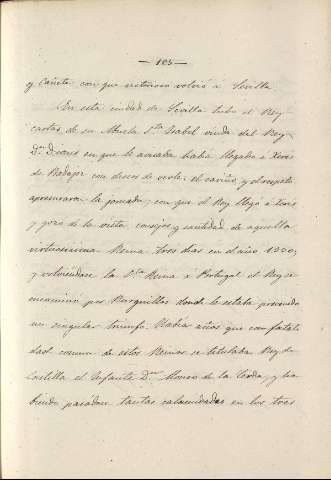 — 105 —
y Cañete con que victorioso volvió á Sevilla.
En esta ciudad de Sevilla tubo el Rey
cartas de su Abuela Sta. Isabel viuda del Rey
Dn. Dionis en que le avisaba habia llegado á Xerez
de Badajoz con deseos de verle: el cariño y el respeto
apresuraron la jornada; con que el Rey llegó á
y gozo de la vista, consejos y santidad de aquella
virtuosisima Reina tres dias en el año 1330;
y volviendose la Sta. Reina á Portugal el Rey se
encaminó por Barguillas donde le estaba
un singular triunfo. Habia años que con fatali-
dad comun de estos Reinos se titulaba Rey de
Castilla el Infante Dn. Alonso de la Cerda, y ha-
biendo pasadose tantas calamidades en los tres